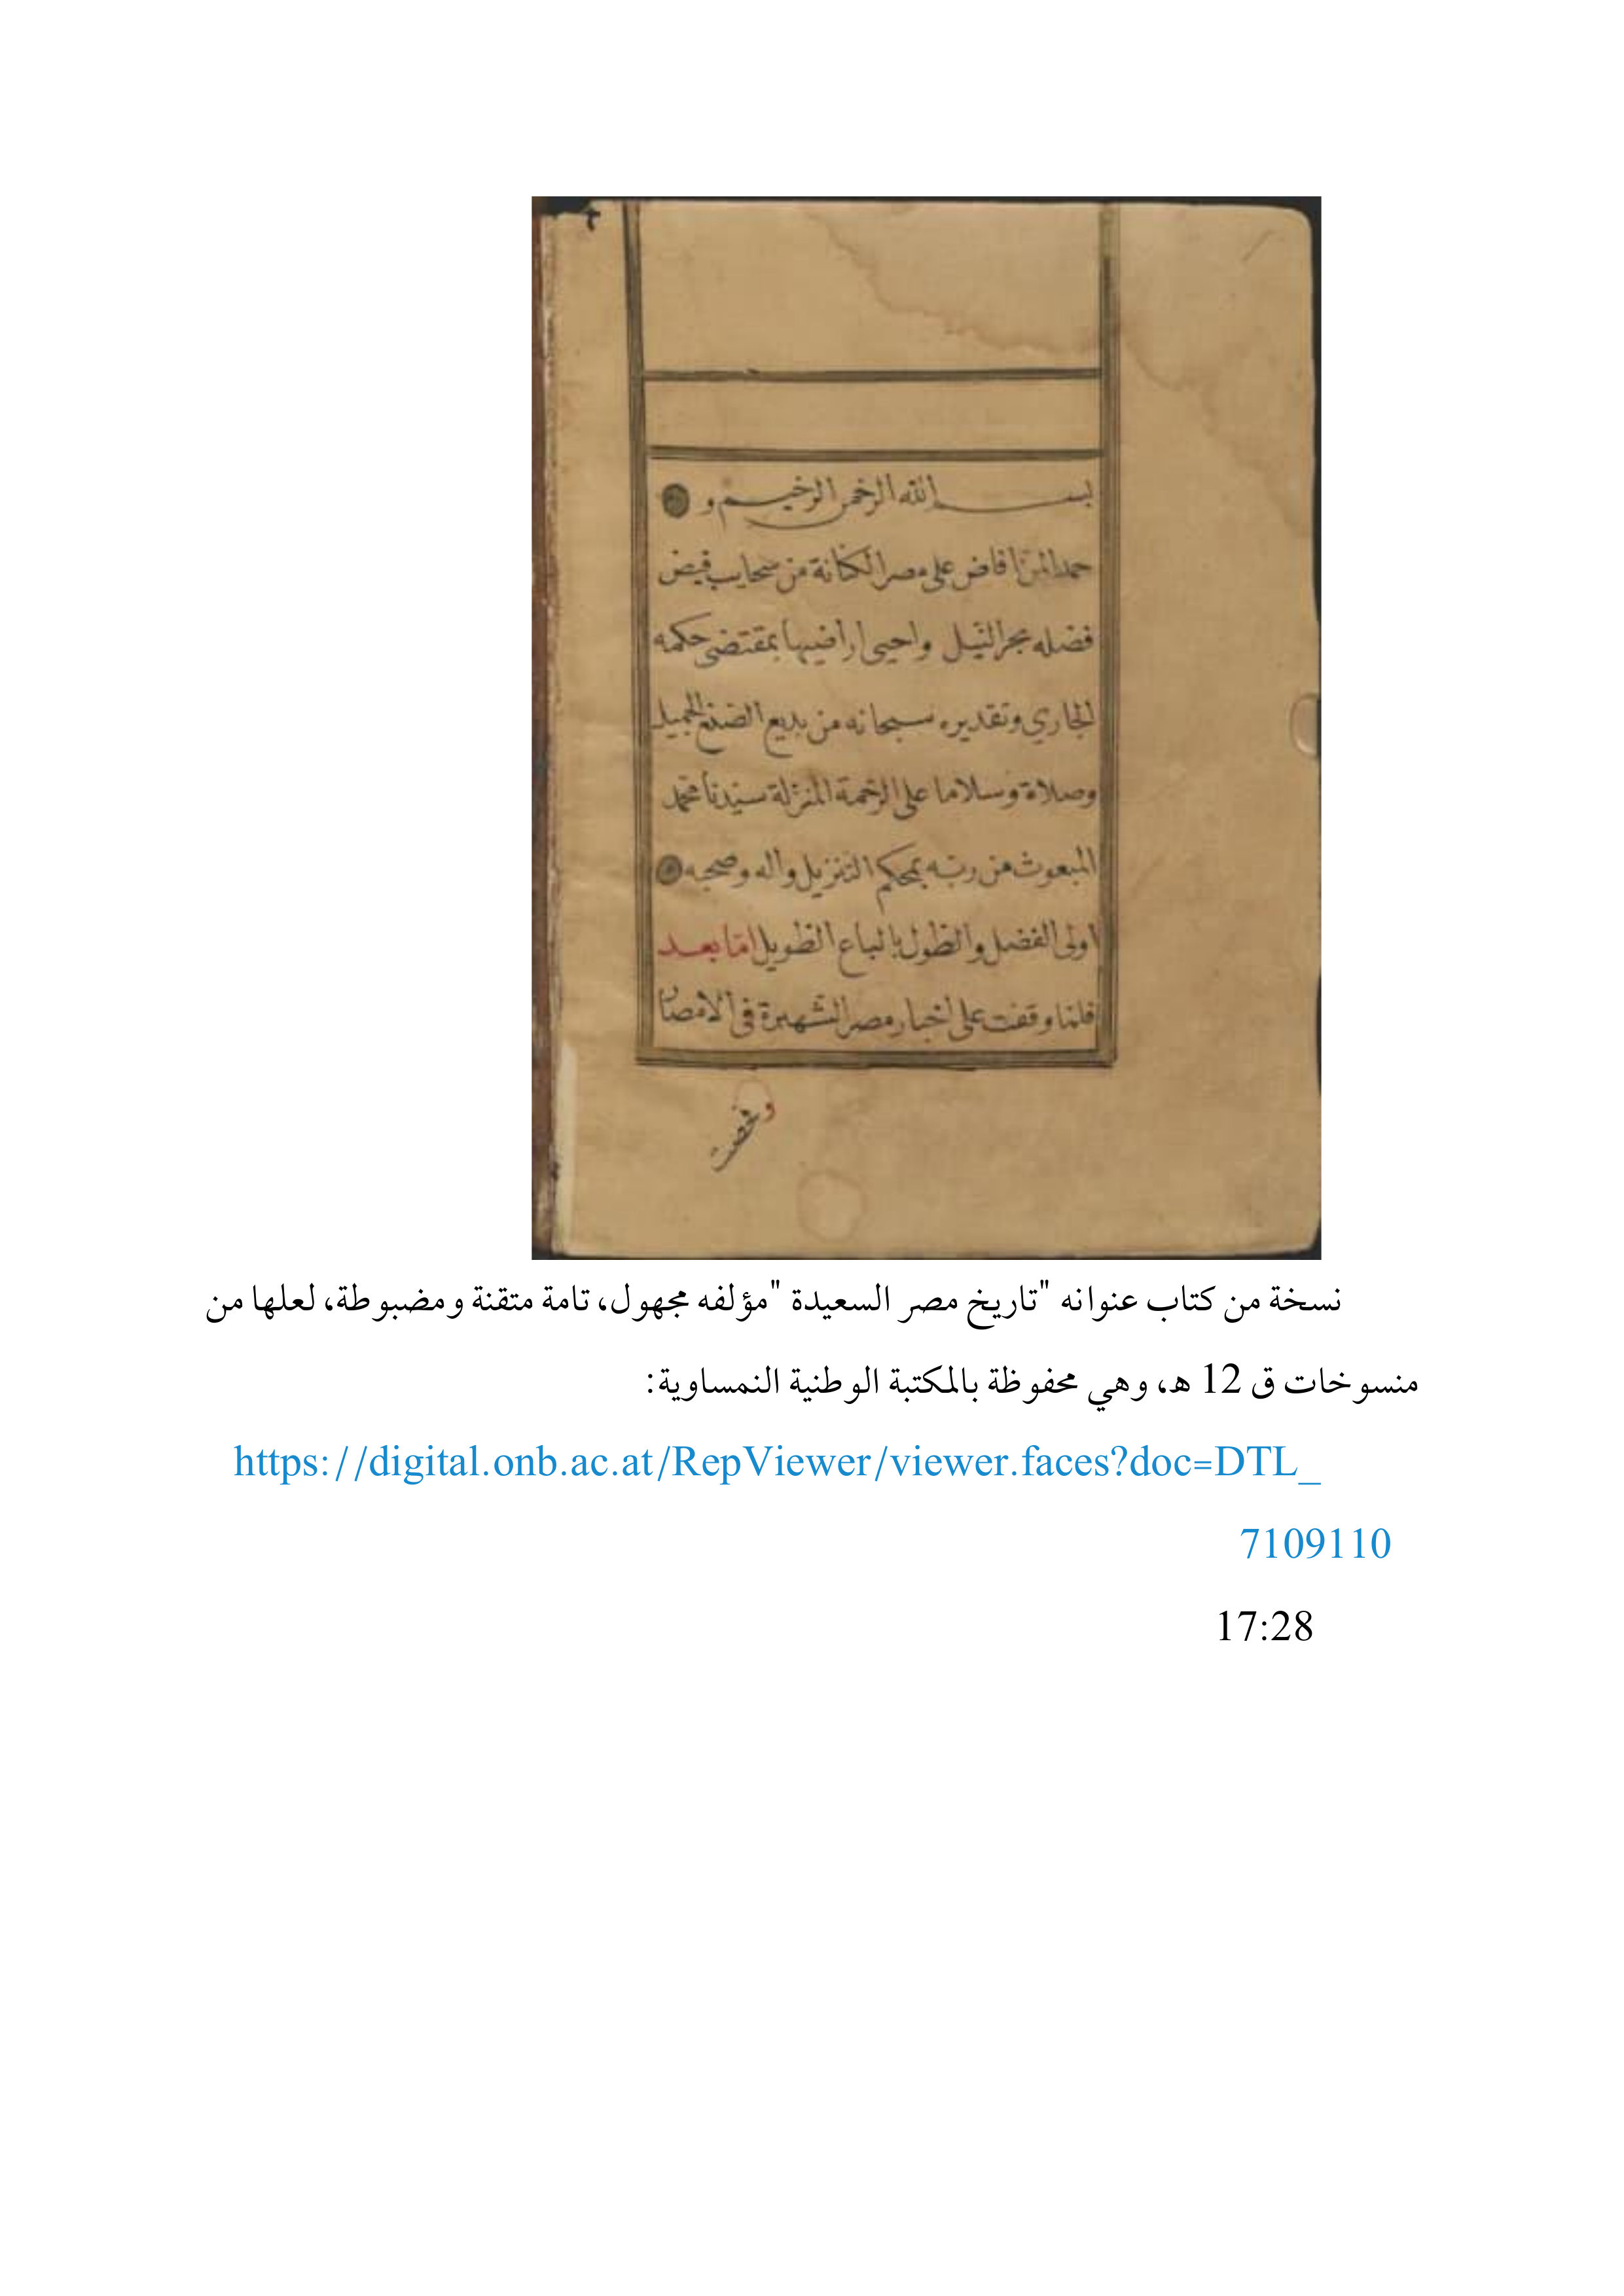 ٢
بسم الله الرحمن الرحيم و
حمدا لمن افاض على مصر الكنانة من سحايب فيض
فضله بحر النيل واحيى اراضيها بمقتضى حكمه
الجاري وتقديره سبحانه من بديع الصنع الجميل
وصلاة وسلاما على الرحمة المنزلة سيدنا محمد
المبعوث من ربه بمحكم التنزيل واله وصحبه
اولى الفضل والطول بالباع الطويل اما بعد
فلما وقفت على اخبار مصر الشهيرة في الامصار
نسخة من كتاب عنوانه "تاريخ مصر السعيدة "مؤلفه مجهول، تامة متقنة ومضبوطة، لعلها من
منسوخات ق 12 هـ، وهي محفوظة بالمكتبة الوطنية النمساوية:
https://digital.onb.ac.at/RepViewer/viewer.faces?doc=DTL_
7109110
17:28